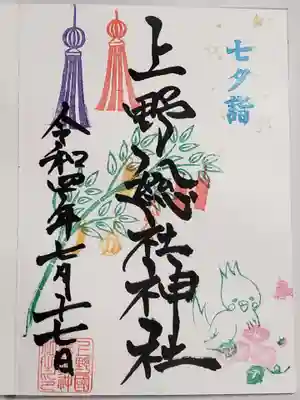 七夕詣
上野總社神社
令和四年七月十七日